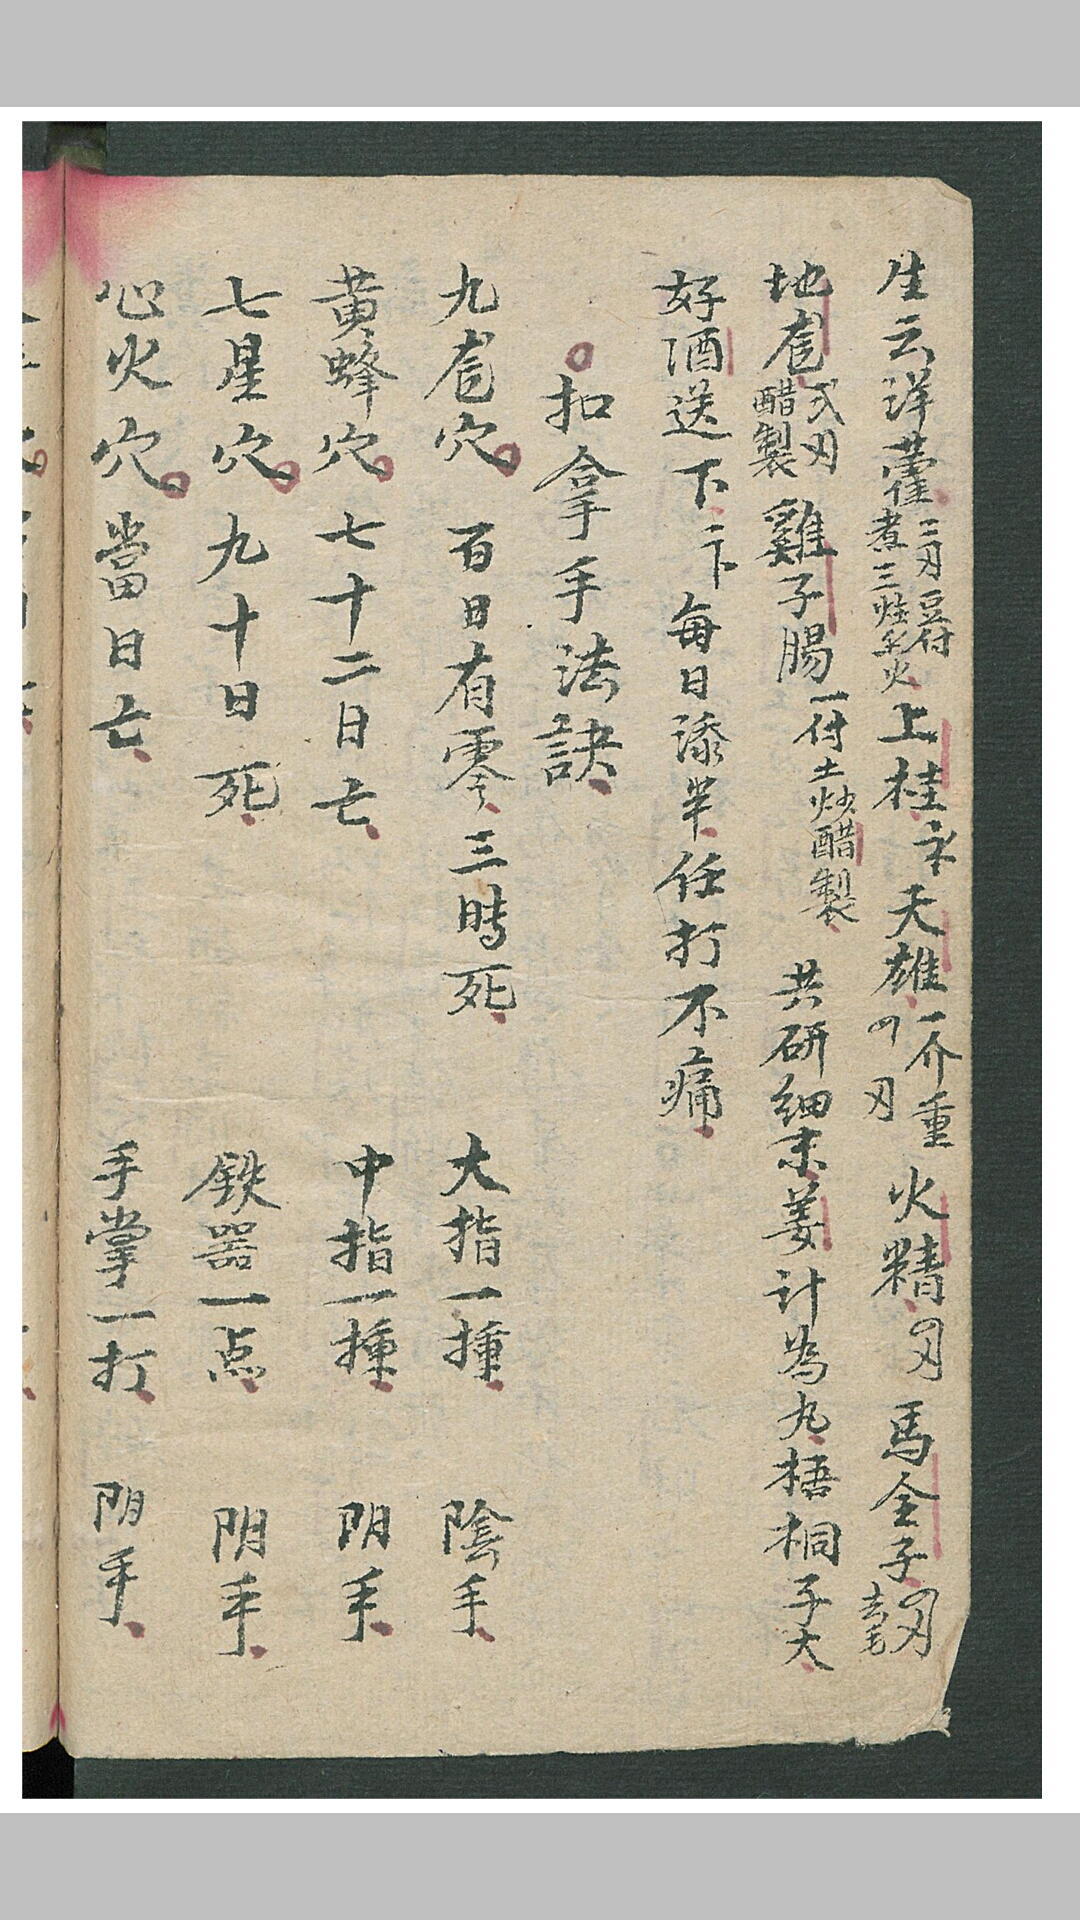 生云洋藿三刃豆付煮三炷火上桂天雄一介重四刃火精四刃馬全子四刃去毛
地虱弍刃醋製雞子腸一付土炒醋製共研細末姜計為丸梧桐子大
好酒送下二卞每日添半任打不痛
扣拿手法訣
九虱穴百日有零三時死大指一捶陰手
黄蜂穴七十二日亡中指一捶阴手
七星穴九十日死鉄器一点阴手
心火穴當日亡手掌一打阴手